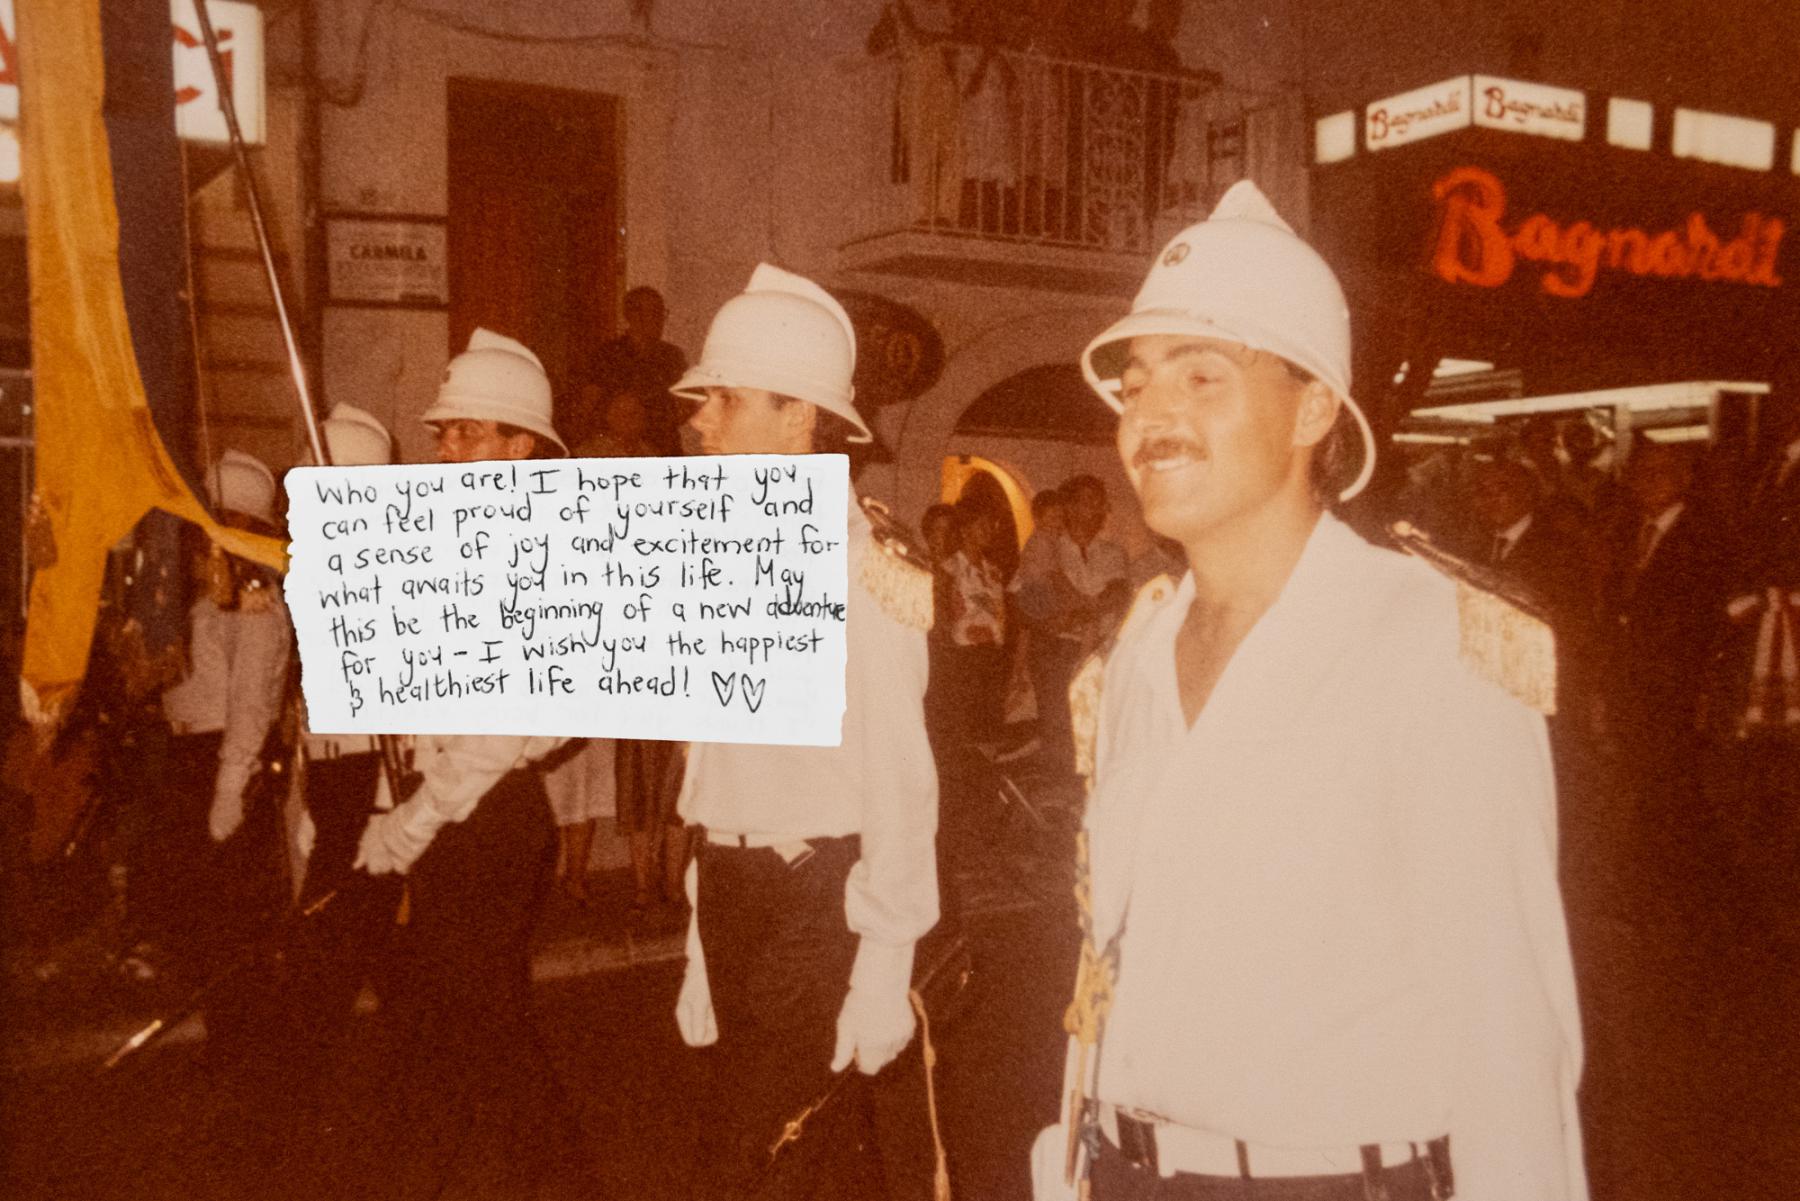 ci
Bagnardi
Bagnardi
Bagnardi
CARMELA
Who you are! I hope that you
can feel proud of yourself and
a sense of joy and excitement for
what awaits you in this life. May
this be the beginning of a new adventure
for you - I wish you the happiest
& healthiest life ahead! ♡♡